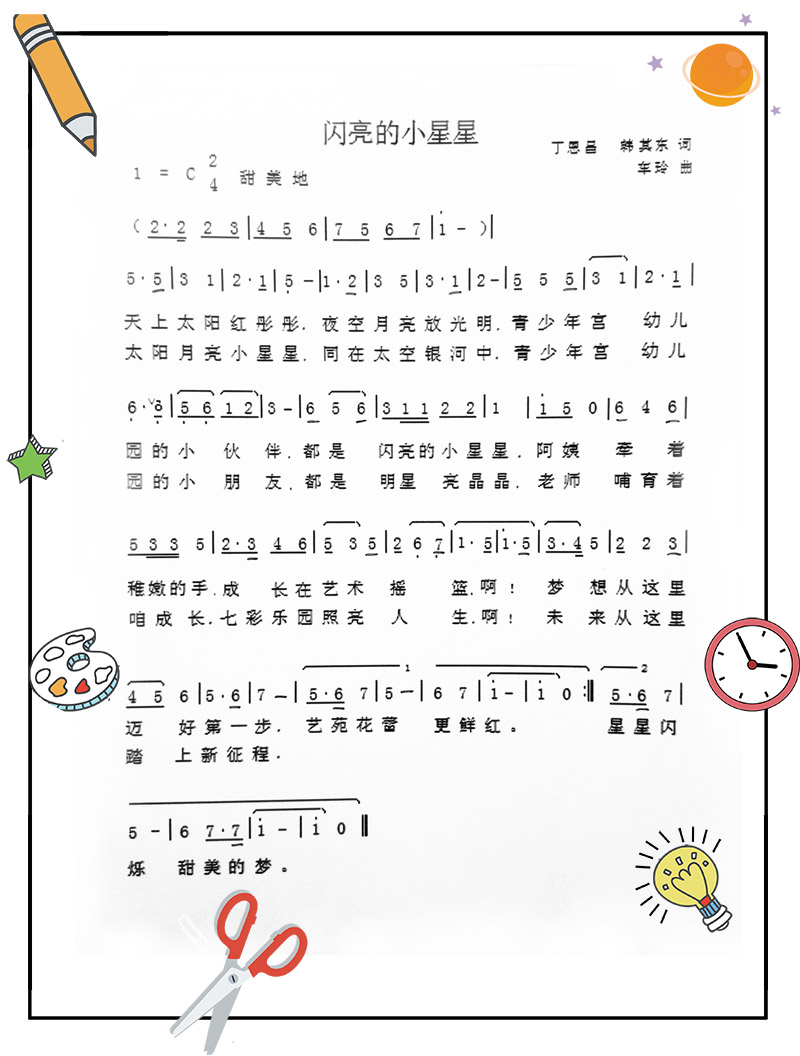 闪亮的小星星
丁恩昌 韩其东 词
1 = C 2/4 甜美地
车玲 曲
( 2· 2 2 3 | 4 5 6 | 7 5 6 7 | i - ) |
5 · 5 | 3 1 | 2 · 1 | 5 - | 1 · 2 | 3 5 | 3 · 1 | 2 - | 5 5 5 | 3 1 | 2 · 1 |
天上太阳红彤彤, 夜空月亮放光明, 青少年宫 幼儿
太阳月亮小星星, 同在太空银河中, 青少年宫 幼儿
6 · 6 | 5 6 1 2 | 3 - | 6 5 6 | 3 1 1 2 2 | 1 | i 5 0 | 6 4 6 |
园的小 伙 伴, 都是 闪亮的小星星, 阿姨 牵 着
园的小 朋 友, 都是 明星 亮晶晶, 老师 哺育着
5 3 3 5 | 2 · 3 4 6 | 5 3 5 | 2 6 7 | i · 5 | i · 5 | 3 · 4 5 | 2 2 3 |
稚嫩的手, 成 长在艺术 摇 篮, 啊! 梦 想从这里
咱成长, 七彩乐园照亮 人 生, 啊! 未 来从这里
4 5 6 | 5 · 6 | 7 — | 5 · 6 7 | 5 — | 6 7 | i - | i 0 :‖ 5 · 6 7 |
1
2
迈 好第一步, 艺苑花蕾 更鲜红。 星星闪
踏 上新征程,
5 - | 6 7 · 7 | i - | i 0 ‖
烁 甜美的梦。